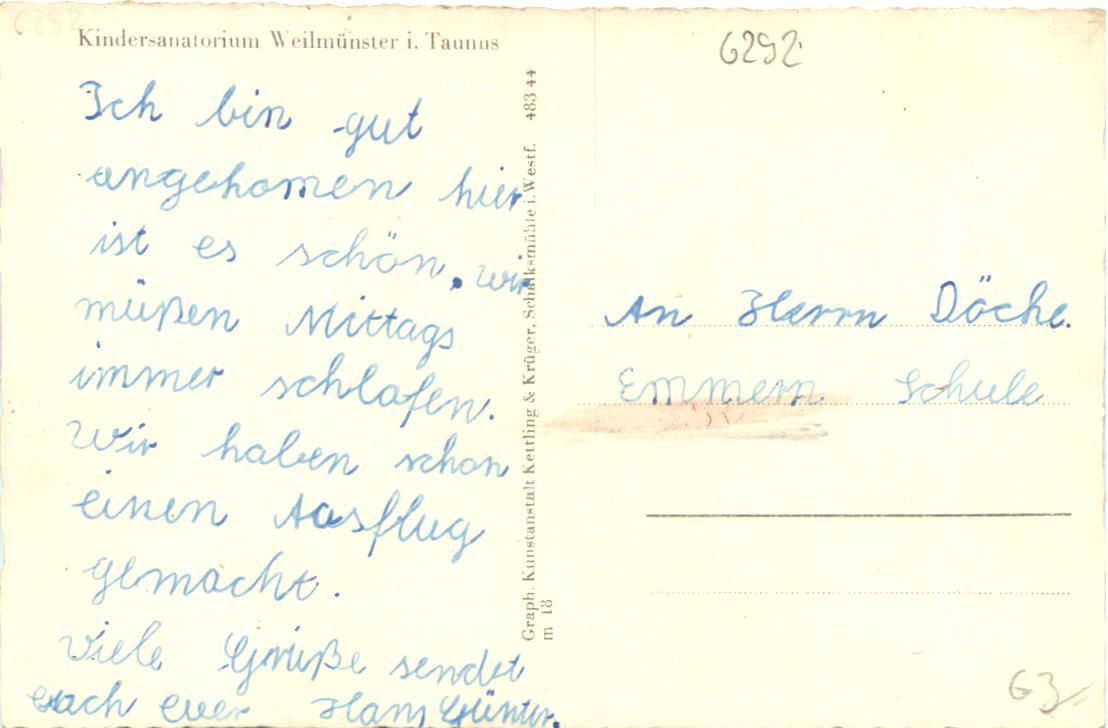 6292
Kindersanatorium Weilmünster i. Taunus
Ich bin gut
angekomen hier
ist es schön, wir
müßen Mittags
immer schlafen.
Wir haben schon
einen Ausflug
gemacht.
Viele Grüße sendet
euch euer Hans Günter.
Graph. Kunstanstalt Kettling & Krüger, Schalksmühle i. Westf. 483 44
m 18
6292
An Herrn Döche.
Emmern Schule
63